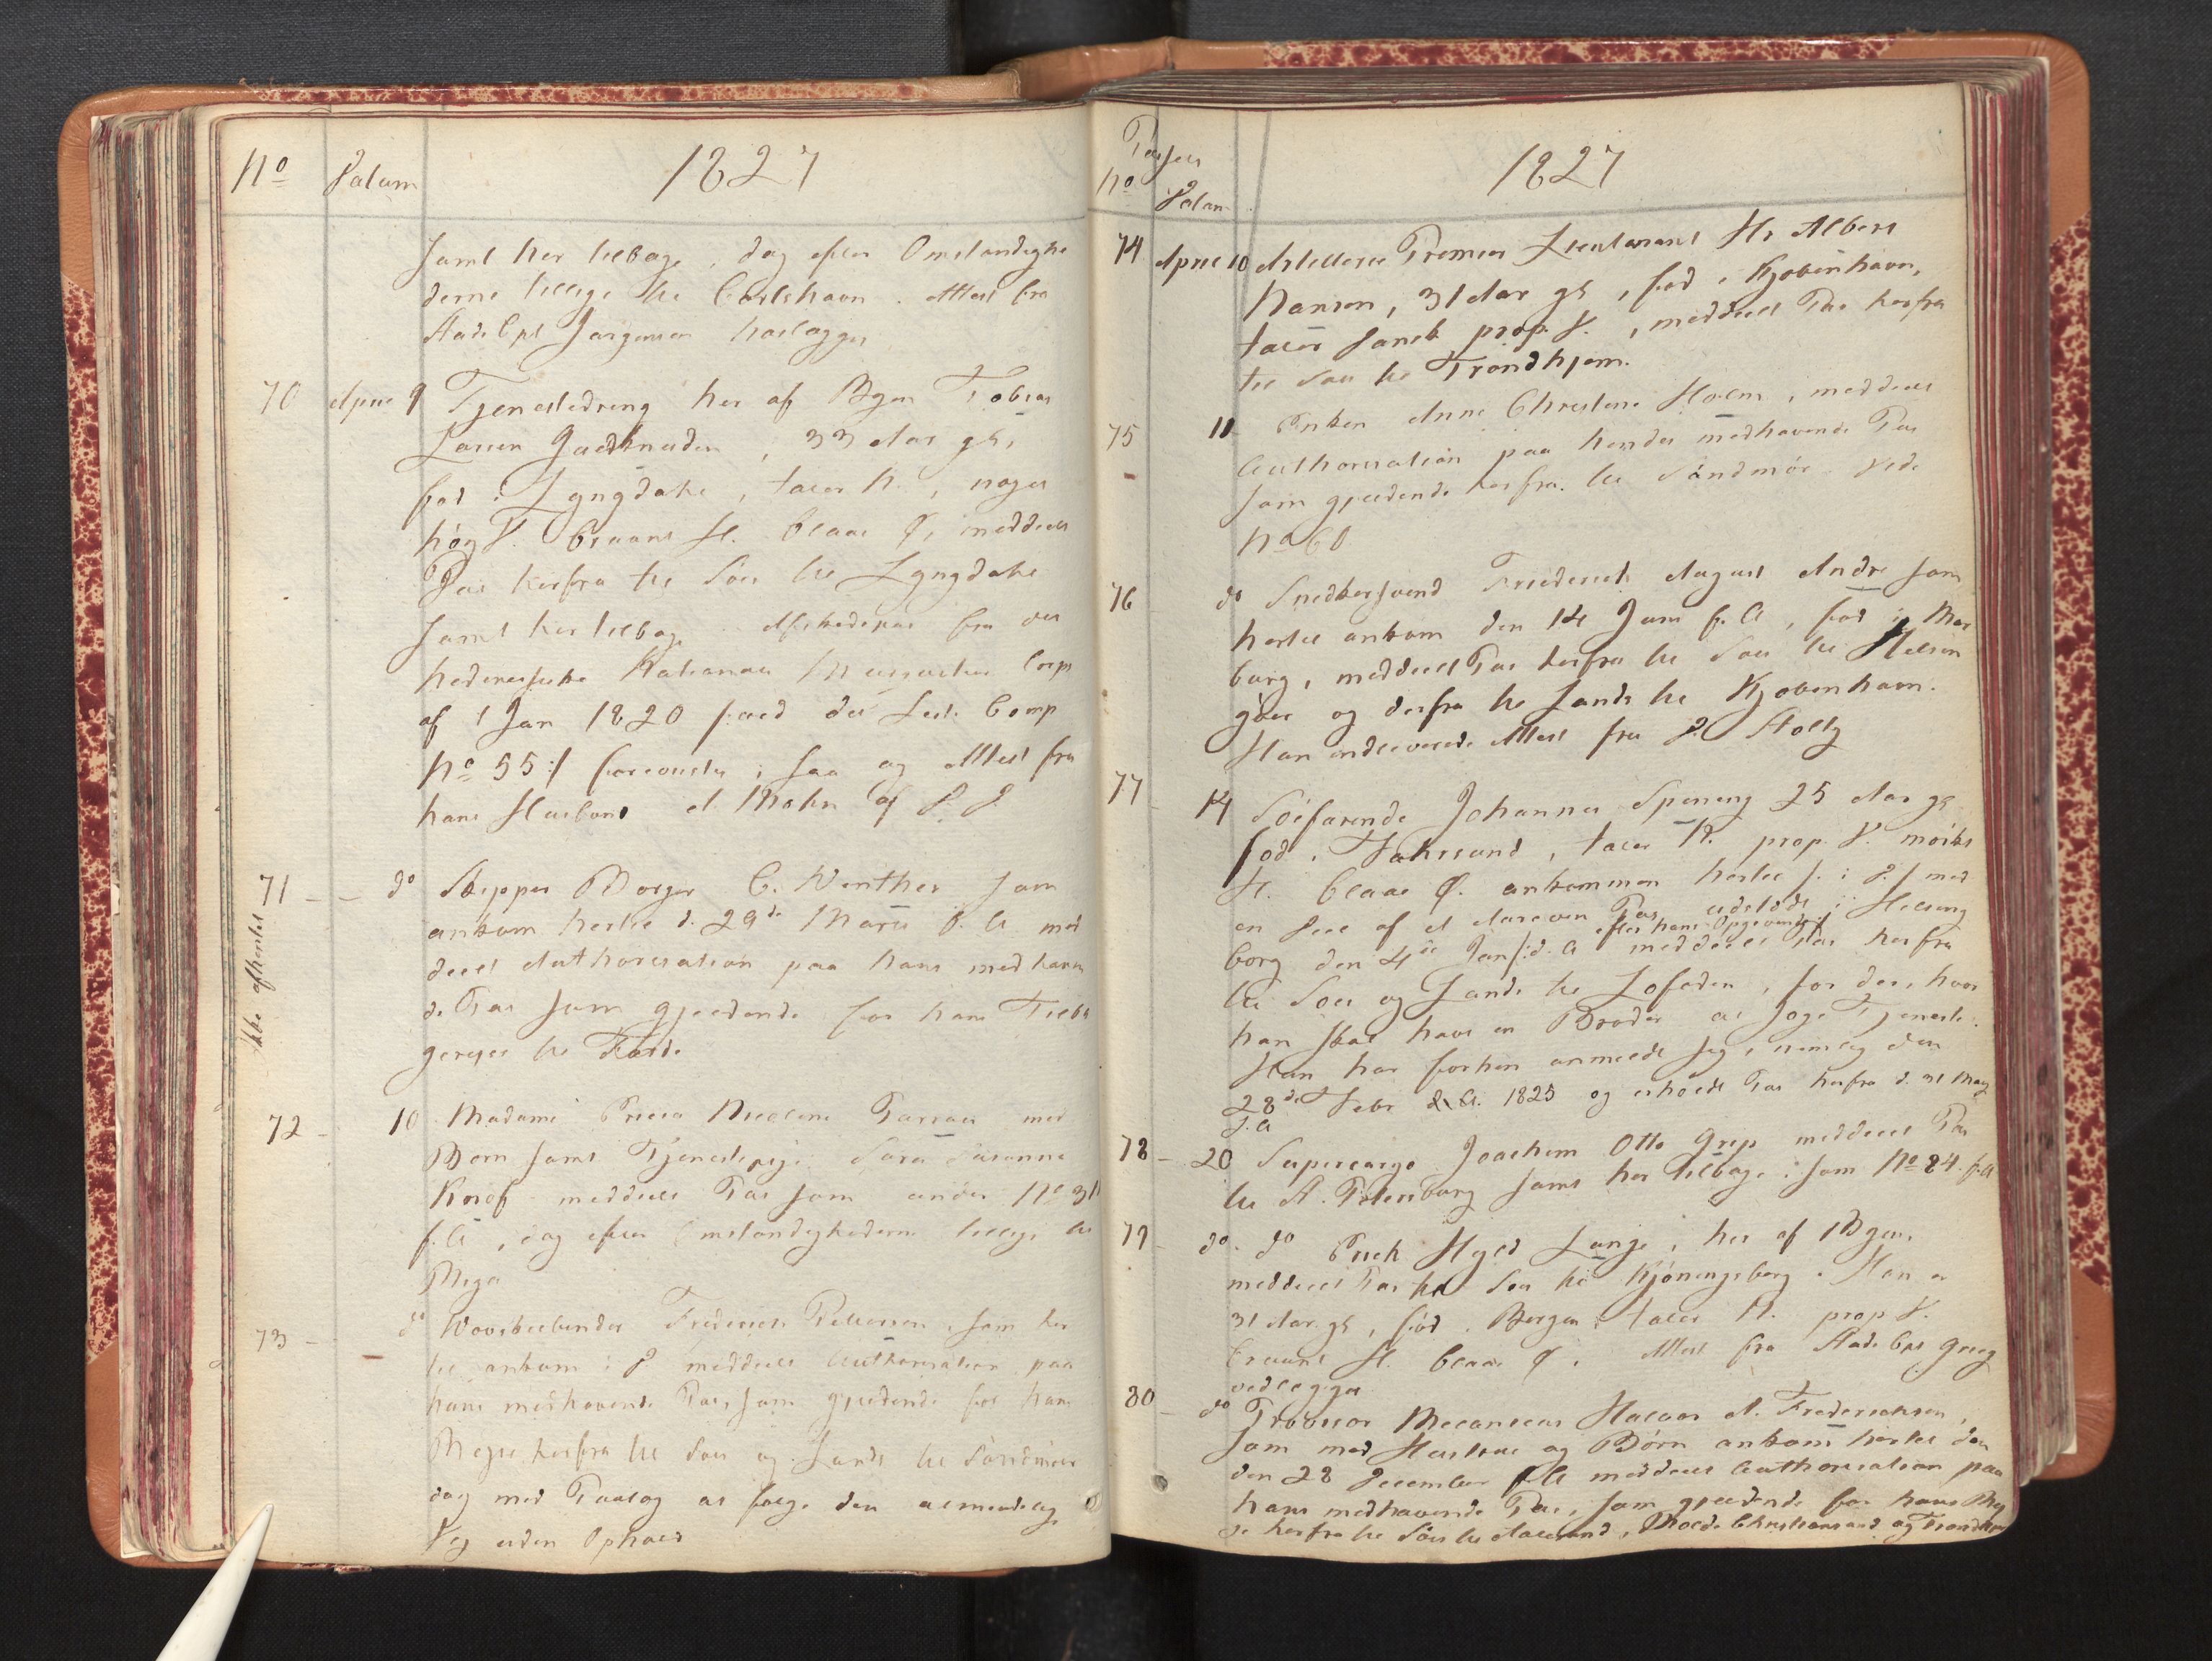 No Datum 1827
samt her tilbage, dog efter Omstændighe
derne tillige til Carlshavn. Attest fra
Stads Cpt Jørgensen hoslægges
70 April 9 Tjenestedreng her af Byen Tobias
Larsen, 33 Aar gl,
fød i Lyngdahl, taler N., noget
høy V. bruunt H. blaae Ø, meddeelt
Pas herfra til Søes til Lyngdahl
samt her tilbage. Afskedspas fra det
Nationale Corps
af 1 Jan 1820 Comp
No 55 :/ forevistes, saa og Attest fra
hans Huusbond A. Mohn af D. D.
71 - - do Skipper Borger C. Winther som
ankom hertil d. 29de Marts d. A. med
deelt Authorisation paa hans medhaven
de Pas som gjældende for hans Tilba
gerejse til
Ikke afhentet
72 - 10 Madame Nicoline med
Børn samt Tjenestepige Sara Susanna
Knof meddeelt Pas som under No 31
f. A, dog efter Omstændighederne tillige til
Riga
73 - do Frederich Pettersen, som her
til ankom i D. meddeelt Authorisation paa
hans medhavende Pas, som gjældende for hans
Rejse herfra til Søes og Lands til Søndmøer
dog med Paalæg at følge den almindelige
Vej uden Ophold
Passer
No Datum 1827
74 April 10 Artillerie Premier Lieutenant Hr Albert
Hansen, 31 Aar gl, fød i Kjøbenhavn,
taler Dansk prop. V., meddeelt Pas herfra
til Søes til Trondhjem.
75 11 Enken Anne Christine Holm, meddeelt
Authorisation paa hendes medhavende Pas
som gjældende herfra til Søndmør. Vide
No 60
76 do Snedkersvend Friederich August Andre som
hertil ankom den 14 Juni f. A, fød i Mar
burg, meddeelt Pas herfra til Søes til Helsin
gøer og derfra til Lands til Kjøbenhavn.
Han indleverede Attest fra D. Stoltz
77 14 Søefarende Johannes Spening 25 Aar gl
fød i Fahrsund, taler N. prop. V. mørkt
H. blaae Ø. ankommen hertil f. i D. f med
en Deel af et Pas udstædt i Helsing
borg den 4de Jan f: d. A efter hans Opgivende :/ meddeelt Pas herfra
til Søes og Lands til Lofoden, for der, hvor
han skal have en Broder at søge Tjeneste.
Han har forhen anmeldt sig, nemlig den
28de Febr d. A. 1825 og erholdt Pas herfra d. 31 May
s. A
78 - 20 Supercargo Joachim Otto Grip meddeelt Pas
til St. Petersburg samt her tilbage, som No 84. f. A
79 - do. do Erich Hyld Lange, her af Byen,
meddeelt Pas til Søes til Kjøningsberg. Han er
31 Aar gl, fød i Bergen, taler N. prop V.
bruunt H. blaae Ø. Attest fra Stads Cpt Grieg
vedlegges
80 - do Professor Mecanicus Halvor A. Frederichsen,
som med Hustrue og Børn ankom hertil den
den 28 December f. A meddeelt Authorisation paa
hans medhavende Pas, som gjældende for hans Rej
se herfra til Søes til Aalesund, Molde Christiansund og Trondhiem